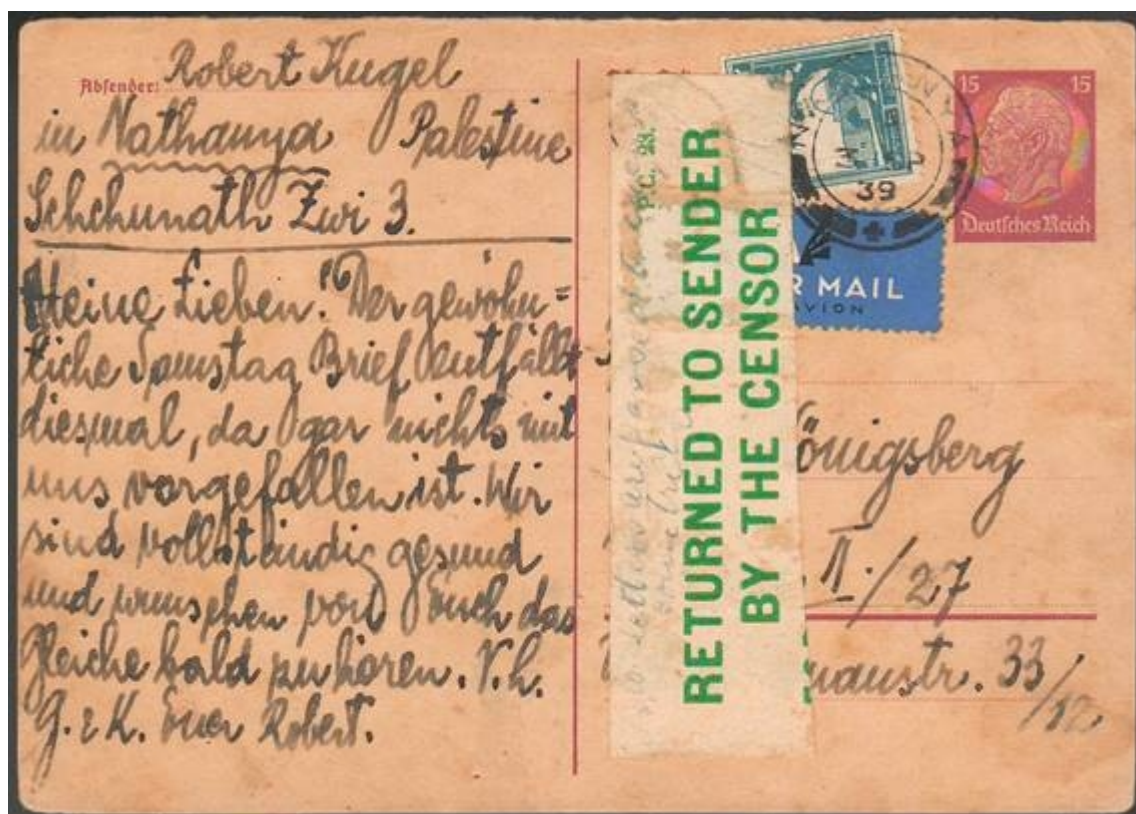 Absender: Robert Kugel
in Nathanya Palestine
Schchunath Zwi 3.
Meine Lieben! Der gewöhn=
liche Samstag Brief entfällt
diesmal, da gar nichts mit
uns vorgefallen ist. Wir
sind vollständig gesund
und wünschen von Euch das
Gleiche bald zu hören. V. h.
G. & K. Euer Robert.
P.C. 23.
RETURNED TO SENDER
BY THE CENSOR
39
15 15
Deutsches Reich
R MAIL
AVION
önigsberg
II./27
austr. 33